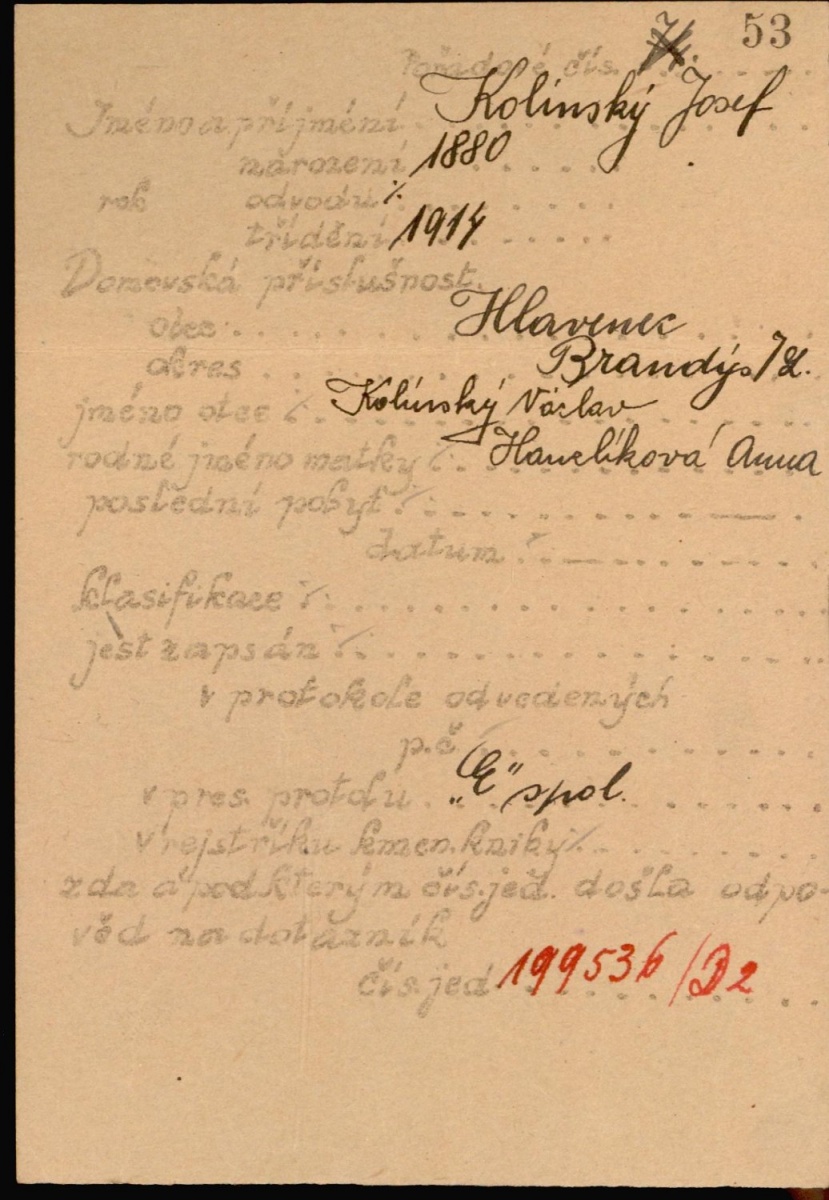 53
Pořadové čís.
Jméno a příjmení Kolínský Josef
narození 1880
rok odvodu ·/·
třídění 1914
Domovská příslušnost.
obec Hlavenec
okres Brandýs /L.
jméno otce Kolínský Václav
rodné jméno matky Anna
poslední pobyt
datum
klasifikace
jest zapsán
v protokole odvedených
p.č
v pres. protolu „E" spol.
v rejstříku kmen. knihy
zda a pod kterým čís. jed. došla odpo-
věd na dotazník
čís. jed 199536/D2